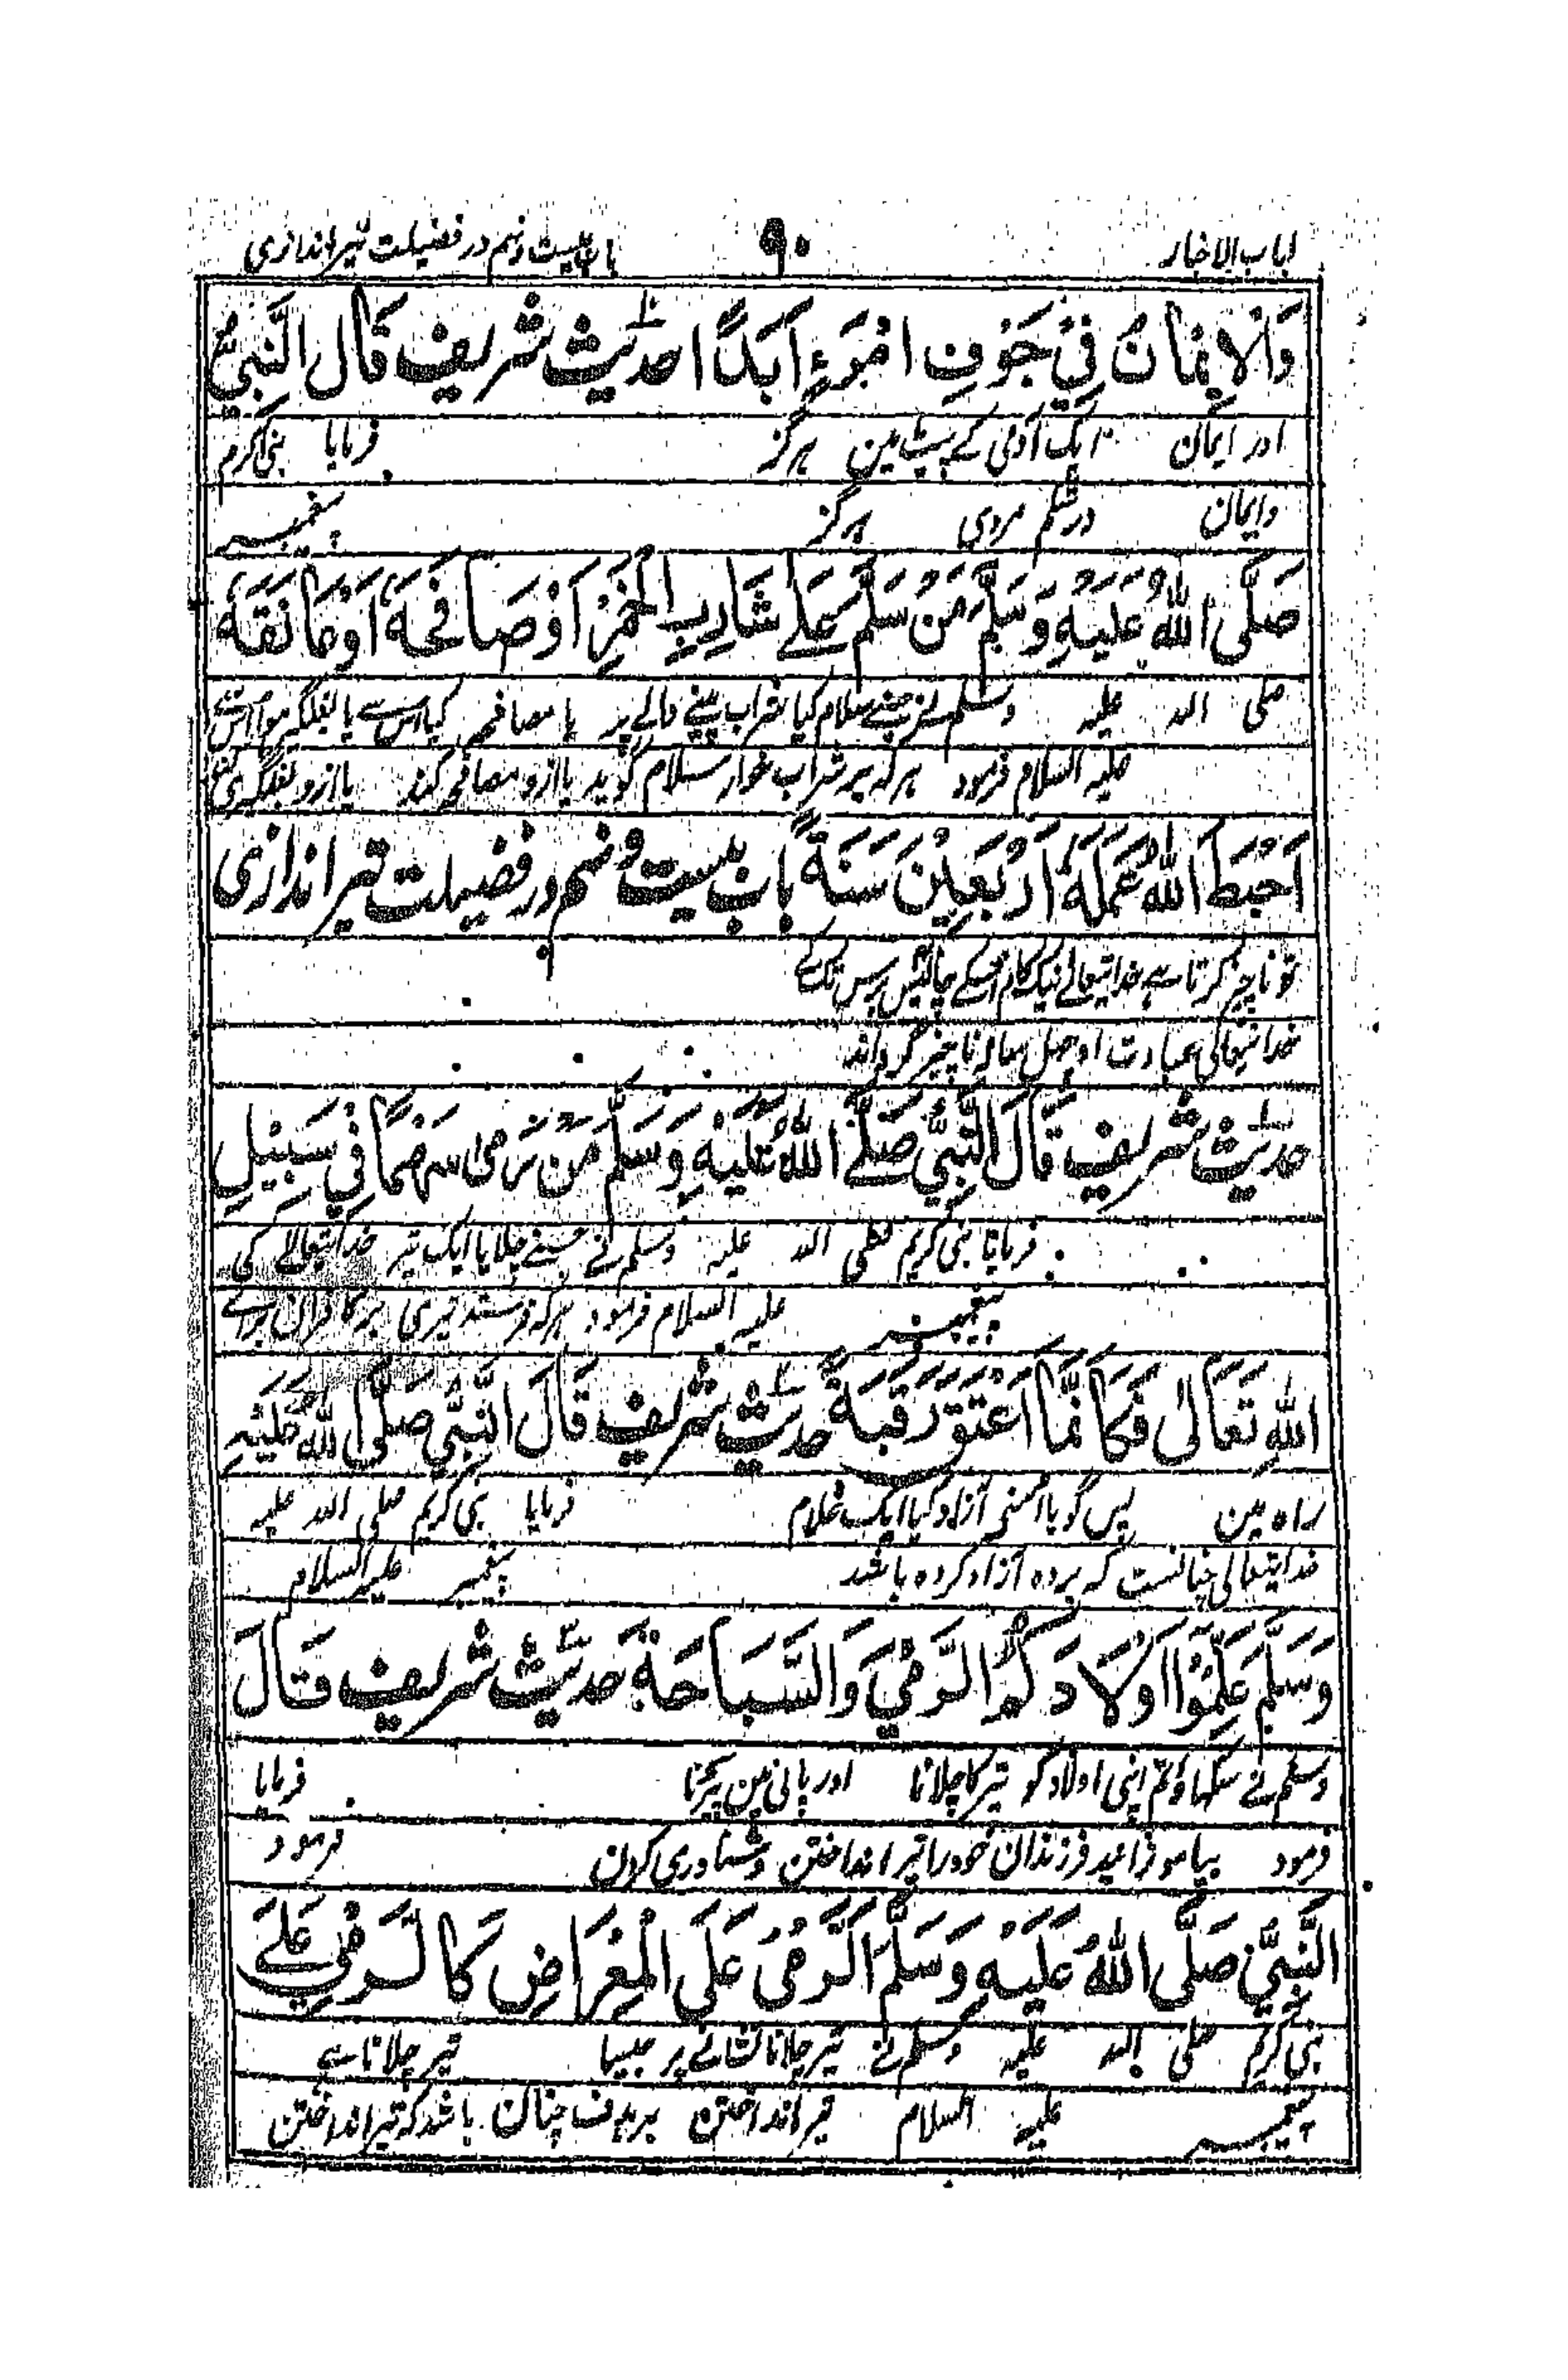 لباب الاخبار ۹۰ باب بیست و نہم در فضیلت تیر اندازی
وَالْاِیْمَانُ فِیْ جَوْفِ امْرَءٍ اَبَدًا حدیث شریف قَالَ النَّبِیُّ
اور ایمان ایک آدمی کے پیٹ مین ہرگز فرمایا نبی کریم
وایمان در شکم مردی ہرگز پیغمبر
صَلَّی اللّٰہُ عَلَیْہِ وَسَلَّمَ مَنْ سَلَّمَ عَلٰے شَارِبِ الْخَمْرِ اَوْ صَافَحَہٗ اَوْ عَانَقَہٗ
صلی اللہ علیہ وسلم نے جسنے سلام کیا شراب پینے والے پر یا مصافحہ کیا اس سے یا بغلگیر ہوا اس سے
علیہ السلام فرمود ہر کہ بر شراب خوار سلام گوید یا ازو مصافحہ کند یا ازو بغلگیری کند
اَحْبَطَ اللّٰہُ عَمَلَہٗ اَرْبَعِیْنَ سَنَةً باب بیست و نہم در فضیلت تیر اندازی
تو ناچیز کرتا ہے خدایتعالے نیک کام اسکے چالیس برس تک کے
خدایتعالی عبادت او چہل سالہ ناچیز گرداند
حدیث شریف قَالَ النَّبِیُّ صَلَّے اللّٰہُ عَلَیْہِ وَسَلَّمَ مَنْ رَمٰی سَہْمًا فِیْ سَبِیْلِ
فرمایا نبی کریم صلی اللہ علیہ وسلم نے جسنے چلایا ایک تیر خدایتعالے کی
پیغمبر علیہ السلام فرمود ہر کہ فرستد تیری بر کافران برائے
اللّٰہِ تَعَالٰی فَکَاَنَّمَا اَعْتَقَ رَقَبَةً حدیث شریف قَالَ النَّبِیُّ صَلَّی اللّٰہُ عَلَیْہِ
راہ مین پس گویا اسنے آزاد کیا ایک غلام فرمایا نبی کریم صلی اللہ علیہ
خدایتعالی چنانست کہ بردہ آزاد کردہ باشد پیغمبر علیہ السلام
وَسَلَّمَ عَلِّمُوْا اَوْلَادَکُمُ الرَّمْیَ وَالسَّبَاحَةَ حدیث شریف قَالَ
وسلم نے سکھاؤ تم اپنی اولاد کو تیر کا چلانا اور پانی مین پیرنا فرمایا
فرمود بیاموزانید فرزندان خود را تیر انداختن و شناوری کردن فرمود
النَّبِیُّ صَلَّی اللّٰہُ عَلَیْہِ وَسَلَّمَ اَلرَّمْیُ عَلَی الْمِغْرَاضِ کَالرَّمْیِ عَلٰے
نبی کریم صلی اللہ علیہ وسلم نے تیر چلانا نشانے پر جیسا تیر چلانا ہے
پیغمبر علیہ السلام تیر انداختن بر ہدف چنان باشد کہ تیر انداختن